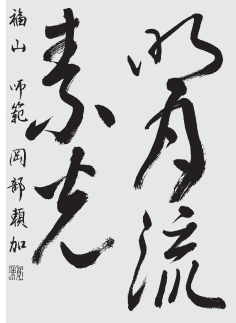 明月流
素光
福山 师範 岡部頼加